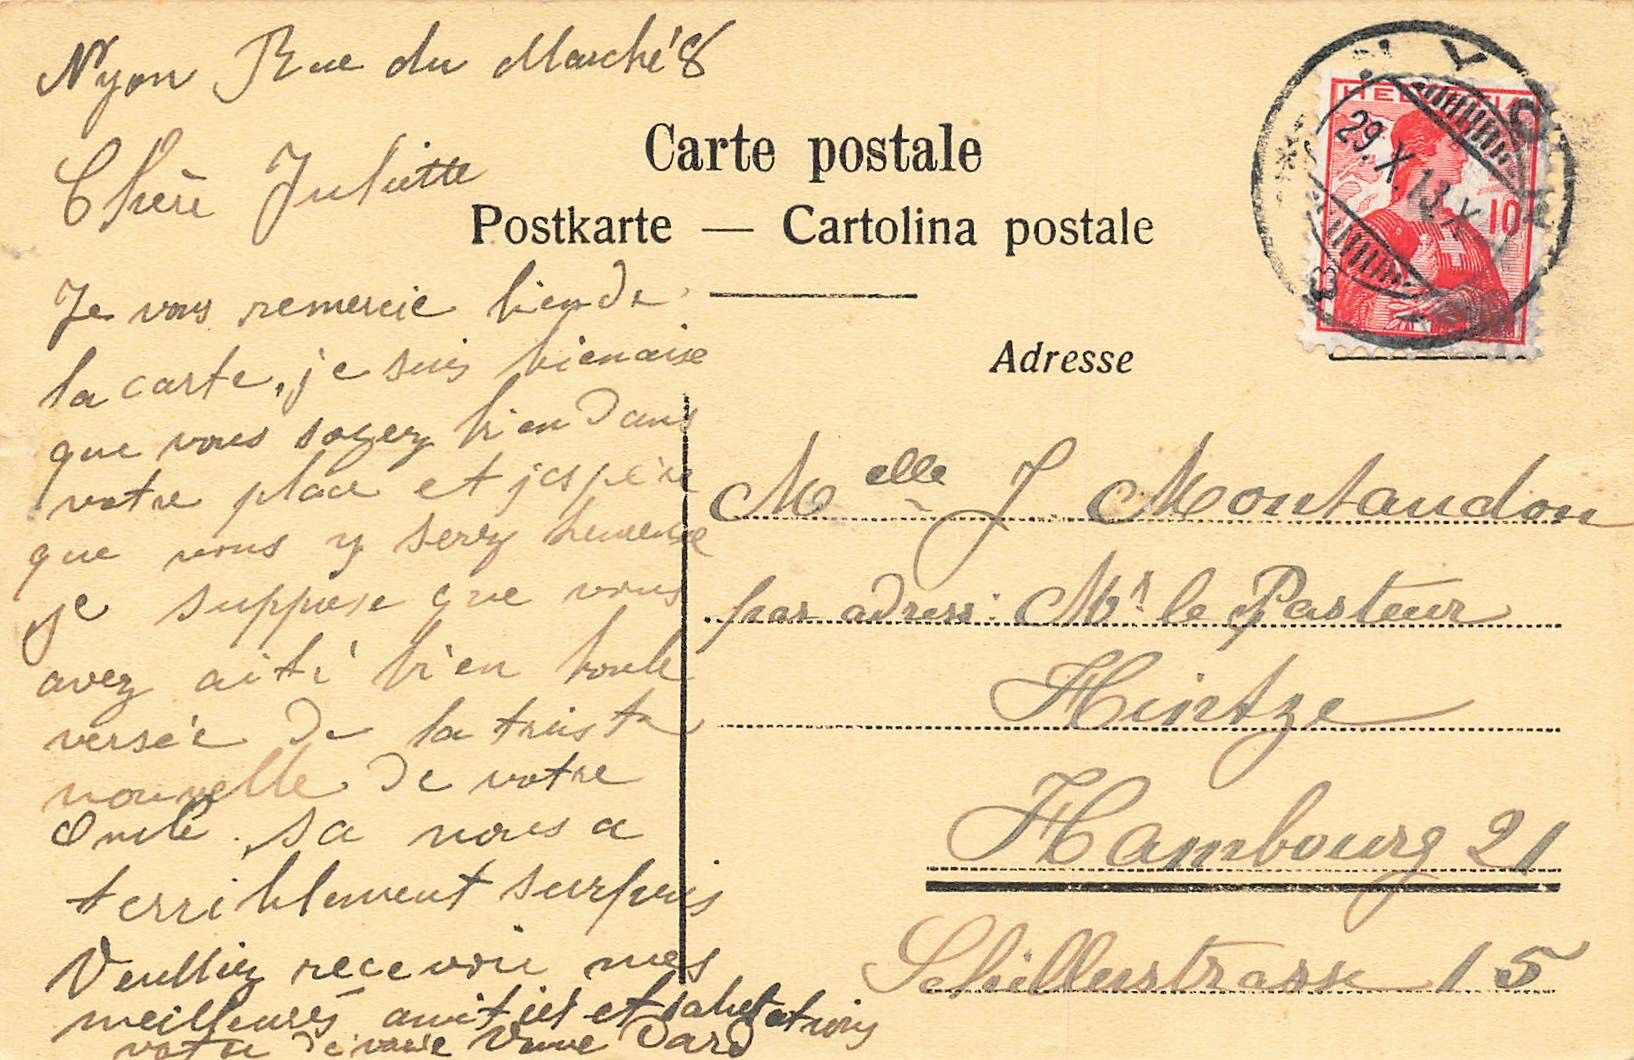 Nyon Rue du Marché 8
Chère Juliette
Carte postale
Postkarte — Cartolina postale
Je vous remercie bien de
la carte, je suis bien aise
que vous soyez bien dans
votre place et j'espère
que vous y serez heureuse
je suppose que vous
avez aité bien boule
versée de la triste
nouvelle de votre
Oncle, sa nous a
terriblement surpris
Veuilliez recevoir mes
meilleures amitiés et salutations
votre dévouée Veuve Dard
HELVETIA
10
NYON
29.X.13.X
Adresse
Melle J Montaudon
par adress: Mr le Pasteur
Hintze
Hambourg 21
Schillerstrasse 15